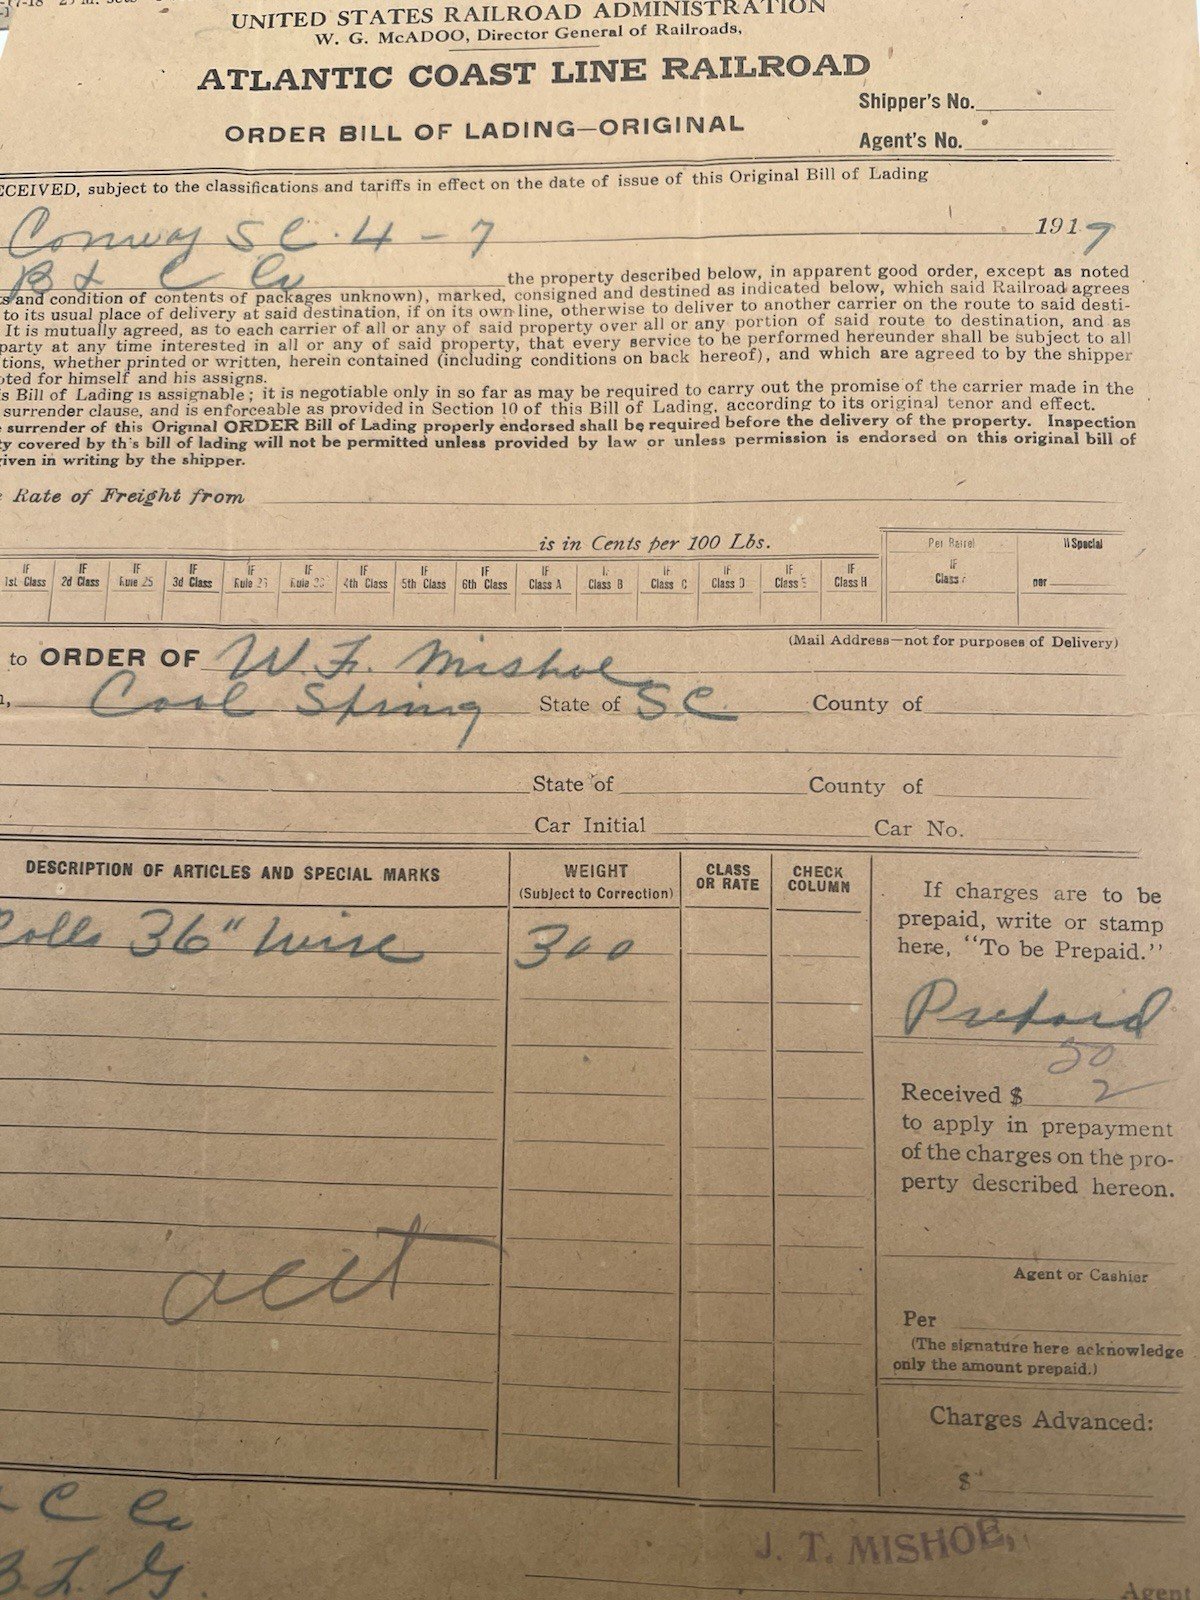 -17-18
UNITED STATES RAILROAD ADMINISTRATION
W. G. McADOO, Director General of Railroads,
ATLANTIC COAST LINE RAILROAD
Shipper's No.
ORDER BILL OF LADING—ORIGINAL
Agent's No.
ECEIVED, subject to the classifications and tariffs in effect on the date of issue of this Original Bill of Lading
Conway S C. 4 - 7 1917
B & C Co the property described below, in apparent good order, except as noted
s and condition of contents of packages unknown), marked, consigned and destined as indicated below, which said Railroad agrees
to its usual place of delivery at said destination, if on its own line, otherwise to deliver to another carrier on the route to said desti-
It is mutually agreed, as to each carrier of all or any of said property over all or any portion of said route to destination, and as
party at any time interested in all or any of said property, that every service to be performed hereunder shall be subject to all
tions, whether printed or written, herein contained (including conditions on back hereof), and which are agreed to by the shipper
pted for himself and his assigns.
s Bill of Lading is assignable; it is negotiable only in so far as may be required to carry out the promise of the carrier made in the
surrender clause, and is enforceable as provided in Section 10 of this Bill of Lading, according to its original tenor and effect.
e surrender of this Original ORDER Bill of Lading properly endorsed shall be required before the delivery of the property. Inspection
ty covered by th's bill of lading will not be permitted unless provided by law or unless permission is endorsed on this original bill of
iven in writing by the shipper.
e Rate of Freight from
is in Cents per 100 Lbs.
Per Barrel
If Special
IF 1st Class IF 2d Class IF Rule 25 IF 3d Class IF Rule 26 IF Rule 28 IF 4th Class IF 5th Class IF 6th Class IF Class A IF Class B IF Class C IF Class D IF Class E IF Class H IF Class per
(Mail Address—not for purposes of Delivery)
to ORDER OF W. F. Mishoe
n, Cool Spring State of S.C. County of
State of County of
Car Initial Car No.
DESCRIPTION OF ARTICLES AND SPECIAL MARKS
WEIGHT
(Subject to Correction)
CLASS
OR RATE
CHECK
COLUMN
Rolls 36" Wire 300
If charges are to be
prepaid, write or stamp
here, "To be Prepaid."
Prepaid
50
Received $ 2
to apply in prepayment
of the charges on the pro-
perty described hereon.
Agent or Cashier
Per
(The signature here acknowledge
only the amount prepaid.)
Charges Advanced:
$
& C Co
B. L. G.
J. T. MISHOE,
Agent